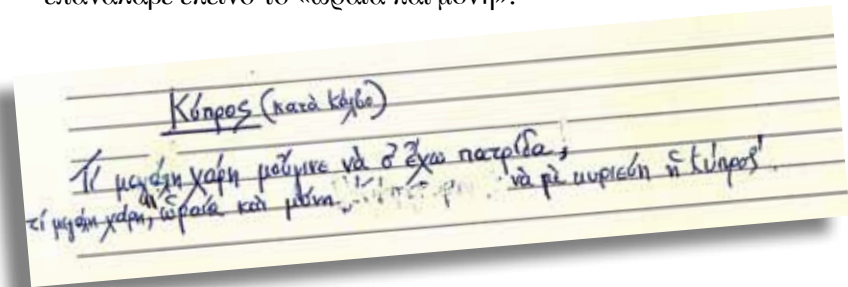 επανάλαβε εκείνο το «ωραία και μόνη».
Κύπρος (κατὰ Κάλβο)
Τί μεγάλη χάρη μοὔγινε νὰ σ' ἔχω πατρίδα,
τί μεγάλη χάρη, ἡ ὡραία καὶ μόνη νὰ μὲ κυριεύη ἡ Κύπρος